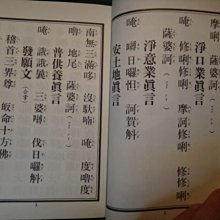 淨口業真言
唵 修唎修唎 摩訶修唎 修修唎
薩婆訶
淨意業真言
唵 嚩日囉怛 訶賀斛
安土地真言
南無三滿哆 沒馱喃 唵 度嚕度
嚕 地尾 薩婆訶
普供養真言
唵 誐誐曩 三婆嚩 伐日囉斛
發願文
稽首三界尊 皈命十方佛